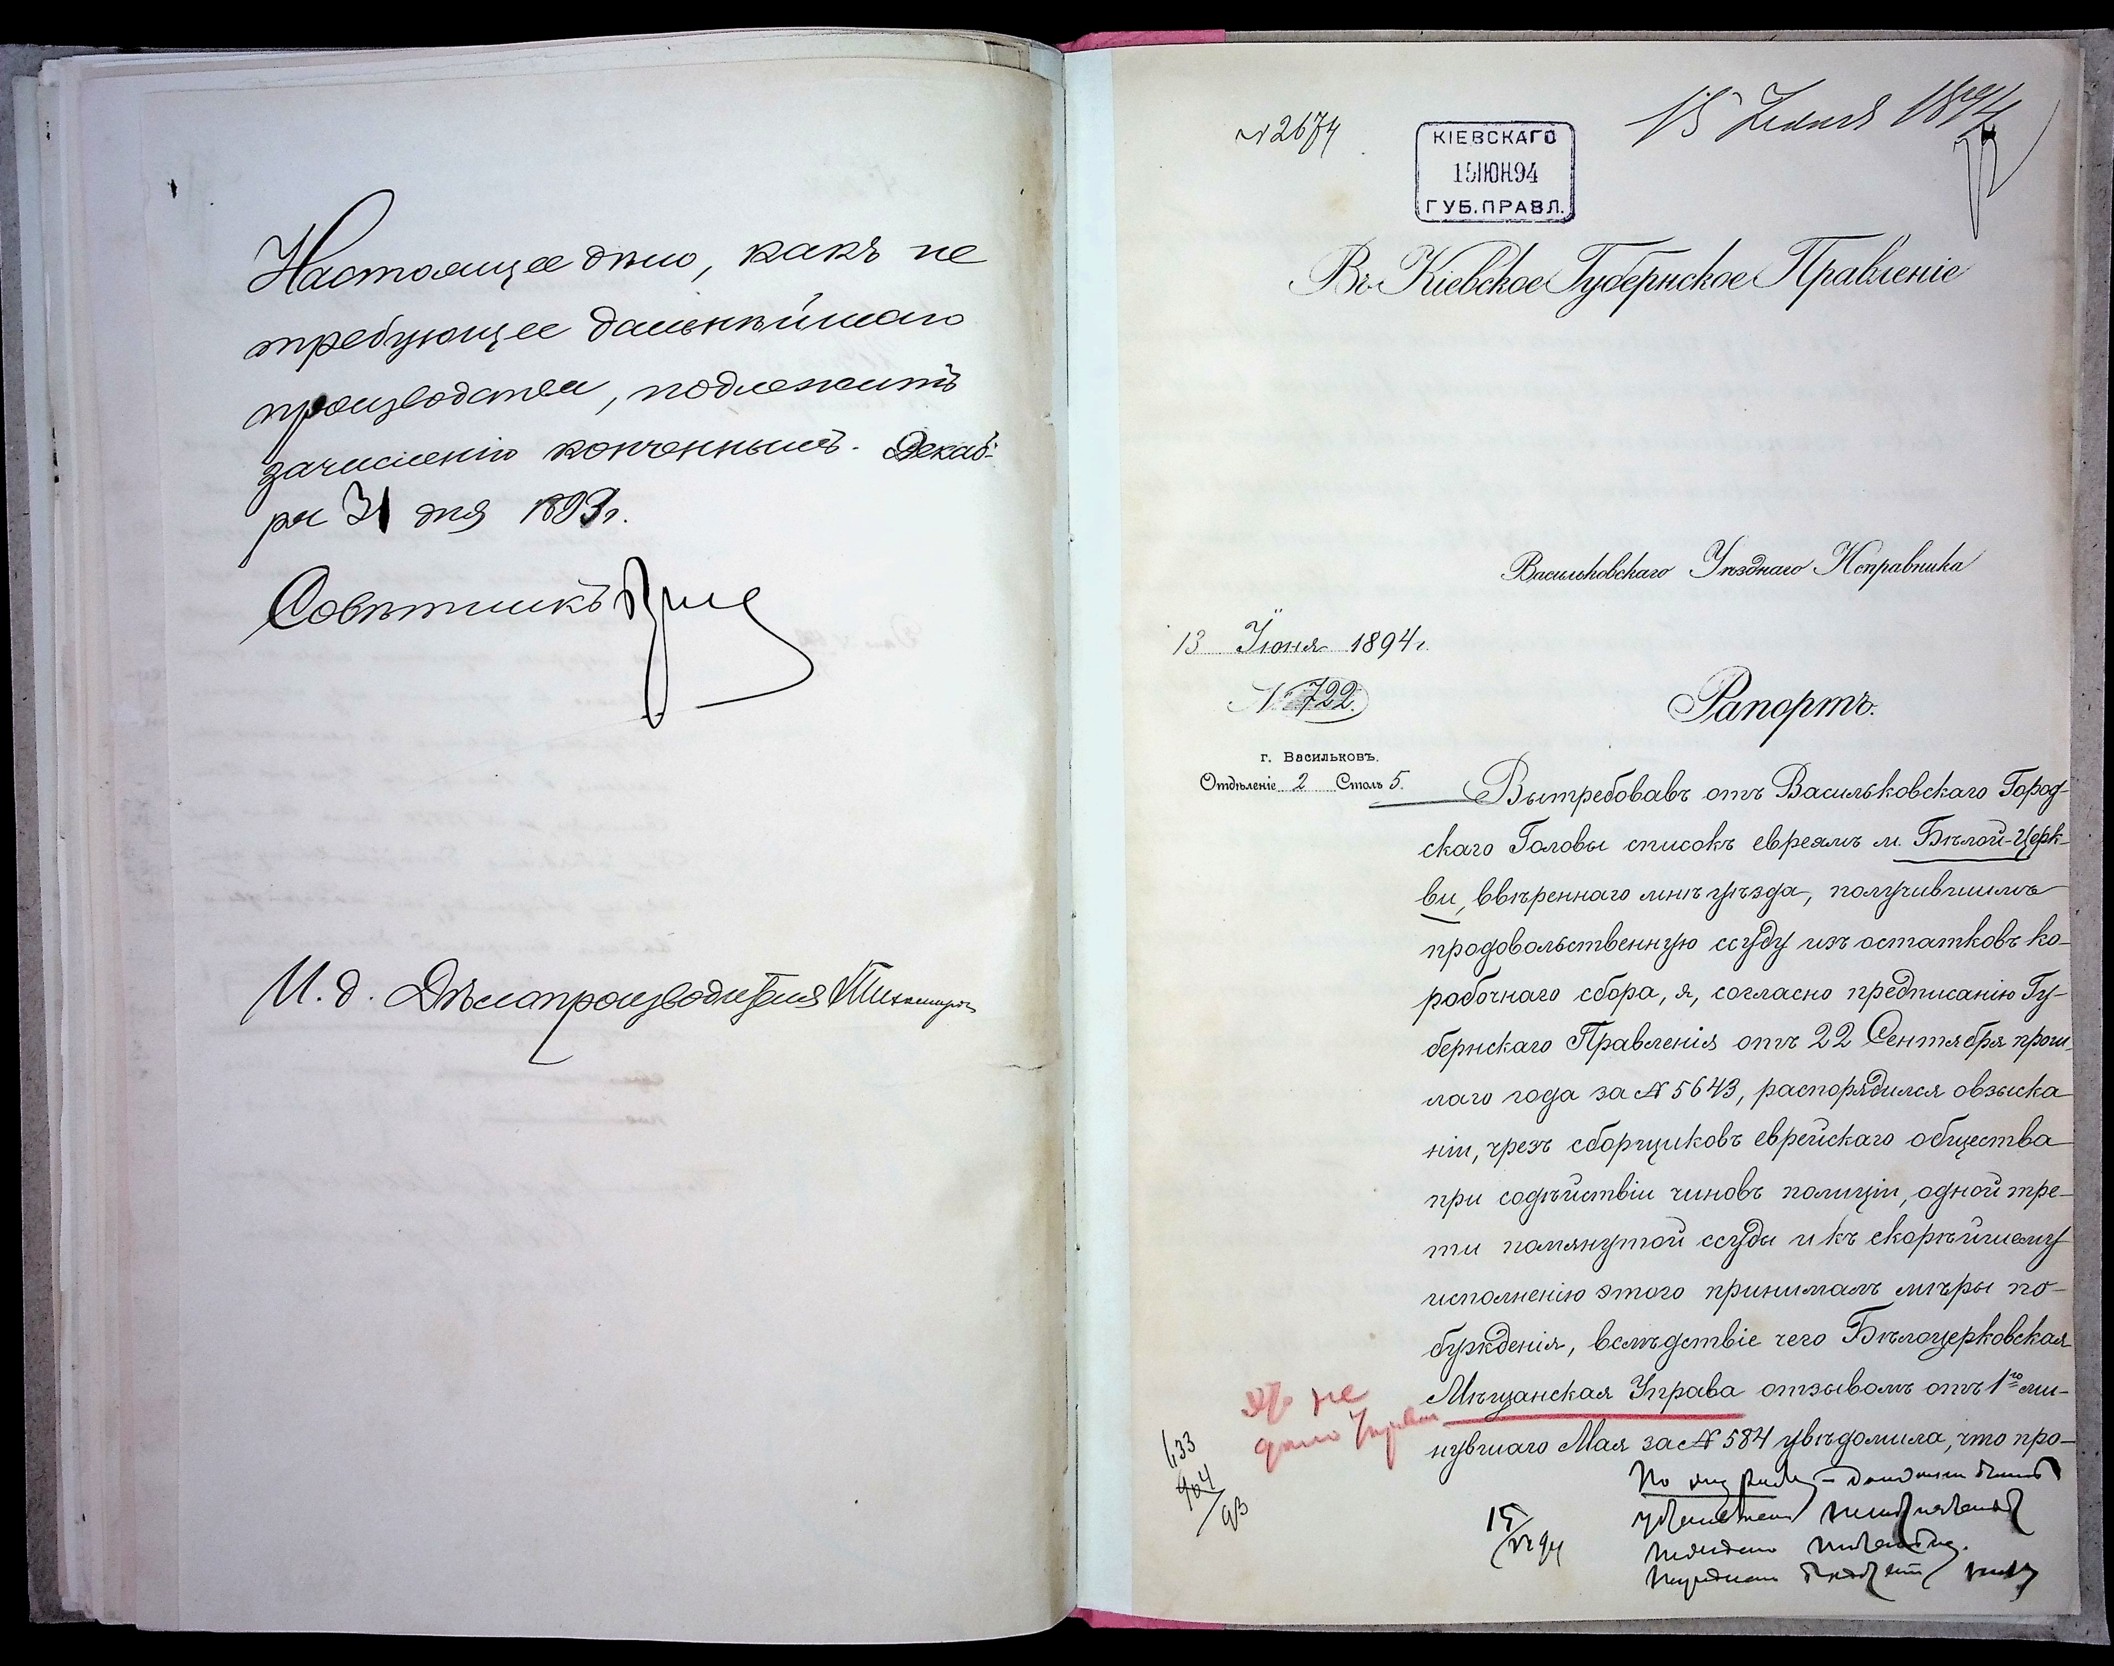 Настоящее дѣло, какъ не
требующее дальнѣйшаго
производства, подлежитъ
зачисленію конченнымъ. Декаб-
ря 31 дня 1893 г.
Совѣтникъ
И. д. Дѣлопроизводителя
№ 2674
КІЕВСКАГО
15 ІЮН 94
ГУБ. ПРАВЛ.
15 Іюня 1894
Въ Кіевское Губернское Правленіе
Васильковскаго Уѣзднаго Исправника
13 Іюня 1894 г.
№ 722.
Рапортъ.
г. Васильковъ.
Отдѣленіе 2 Столъ 5.
Вытребовавъ отъ Васильковскаго Город-
скаго Головы списокъ евреямъ м. Бѣлой-Церк-
ви, ввѣреннаго мнѣ уѣзда, получившимъ
продовольственную ссуду изъ остатковъ ко-
робочнаго сбора, я, согласно предписанію Гу-
бернскаго Правленія отъ 22 Сентября прош-
лаго года за № 5643, распорядился о взыска
ніи, чрезъ сборщиковъ еврейскаго общества
при содѣйствіи чиновъ полиціи, одной тре-
ти помянутой ссуды и къ скорѣйшему
исполненію этого принималъ мѣры по-
бужденія, вслѣдствіе чего Бѣлоцерковская
Мѣщанская Управа отзывомъ отъ 1го ми-
нувшаго Мая за № 584 увѣдомила, что про-
не
133
904
93
15